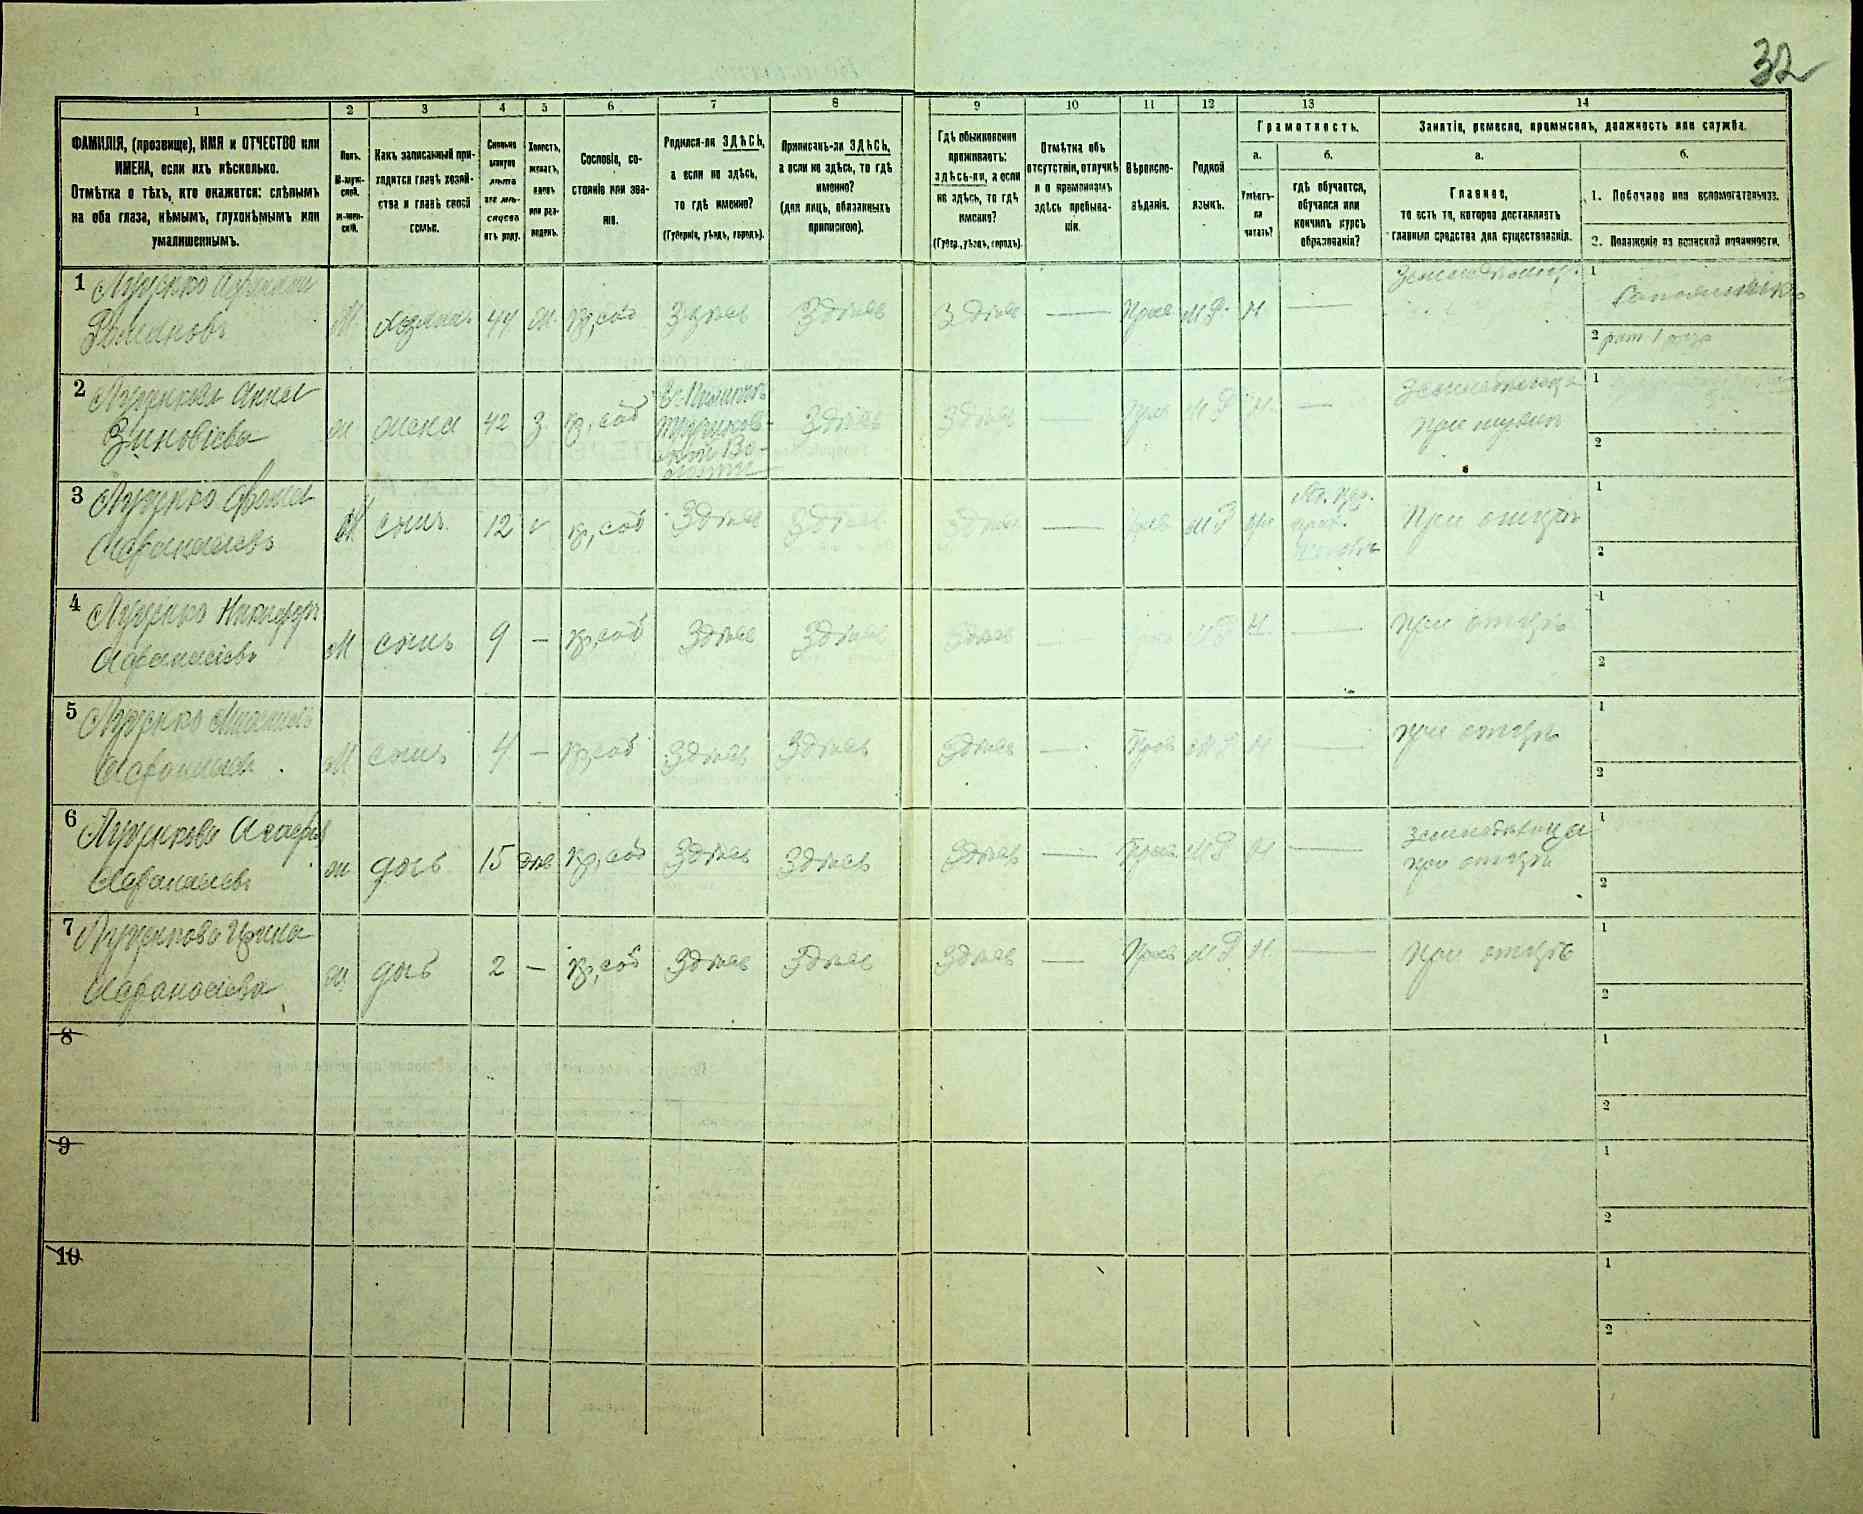 32
1 2 3 4 5 6 7 8 9 10 11 12 13 14
ФАМИЛІЯ, (прозвище), ИМЯ и ОТЧЕСТВО или
ИМЕНА, если ихъ нѣсколько.
Отмѣтка о тѣхъ, кто окажется: слѣпымъ
на оба глаза, нѣмымъ, глухонѣмымъ или
умалишеннымъ.
Полъ.
М-муж-
ской.
ж-жен-
скій.
Какъ записанный при-
ходится главѣ хозяй-
ства и главѣ своей
семьи.
Сколько
минуло
лѣтъ
или мѣ-
сяцевъ
отъ роду.
Холостъ,
женатъ,
вдовъ
или раз-
веденъ.
Сословіе, со-
стояніе или зва-
ніе.
Родился-ли ЗДѢСЬ,
а если не здѣсь,
то гдѣ именно?
(Губернія, уѣздъ, городъ).
Приписанъ-ли ЗДѢСЬ,
а если не здѣсь, то гдѣ
именно?
(для лицъ, обязанныхъ
припискою).
Гдѣ обыкновенно
проживаетъ:
здѣсь-ли, а если
не здѣсь, то гдѣ
именно?
(Губер., уѣздъ, городъ).
Отмѣтка объ
отсутствіи, отлучкѣ
и о временномъ
здѣсь пребыва-
ніи.
Вѣроиспо-
вѣданіе.
Родной
языкъ.
Грамотность.
а.
Умѣетъ-
ли
читать?
б.
гдѣ обучается,
обучался или
кончилъ курсъ
образованія?
Занятіе, ремесло, промыселъ, должность или служба.
а.
Главное,
то есть то, которое доставляетъ
главныя средства для существованія.
б.
1. Побочное или вспомогательное.
2. Положеніе по воинской повинности.
1 Луценко
Романовъ
М. хозяинъ 44 ж. кр, соб Здѣсь Здѣсь Здѣсь — Прав М Р. Н —
1
2 рат 1 раз
2 Луценкова Анна
Зиновіева
ж жена 42 з. кр, соб
Здѣсь Здѣсь — Прав М Р Н. —
при мужѣ
1
2
3 Луценко Фома
Афанасіевъ
М сынъ 12 кр, соб Здѣсь Здѣсь Здѣсь — М Р
При отцѣ
1
2
4 Луценко Никифоръ
Афанасіевъ
М сынъ 9 — кр, соб Здѣсь Здѣсь Здѣсь — М Р Н —
при отцѣ
1
2
5 Луценко
Афанасіевъ
М сынъ 4 — кр, соб Здѣсь Здѣсь Здѣсь — Прав М Р Н —
при отцѣ
1
2
6 Луценкова Агафія
Афанасіева
ж дочь 15 дѣв кр, соб Здѣсь Здѣсь Здѣсь — Прав М Р Н —
при отцѣ
1
2
7 Луценкова Ирина
Афанасіева
ж дочь 2 — кр, соб Здѣсь Здѣсь Здѣсь — Прав М Р Н. —
При отцѣ
1
2
8
1
2
9
1
2
10
1
2